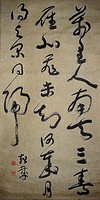 萬里人南去三春
雁北飛未知何歲月
得與爾同歸